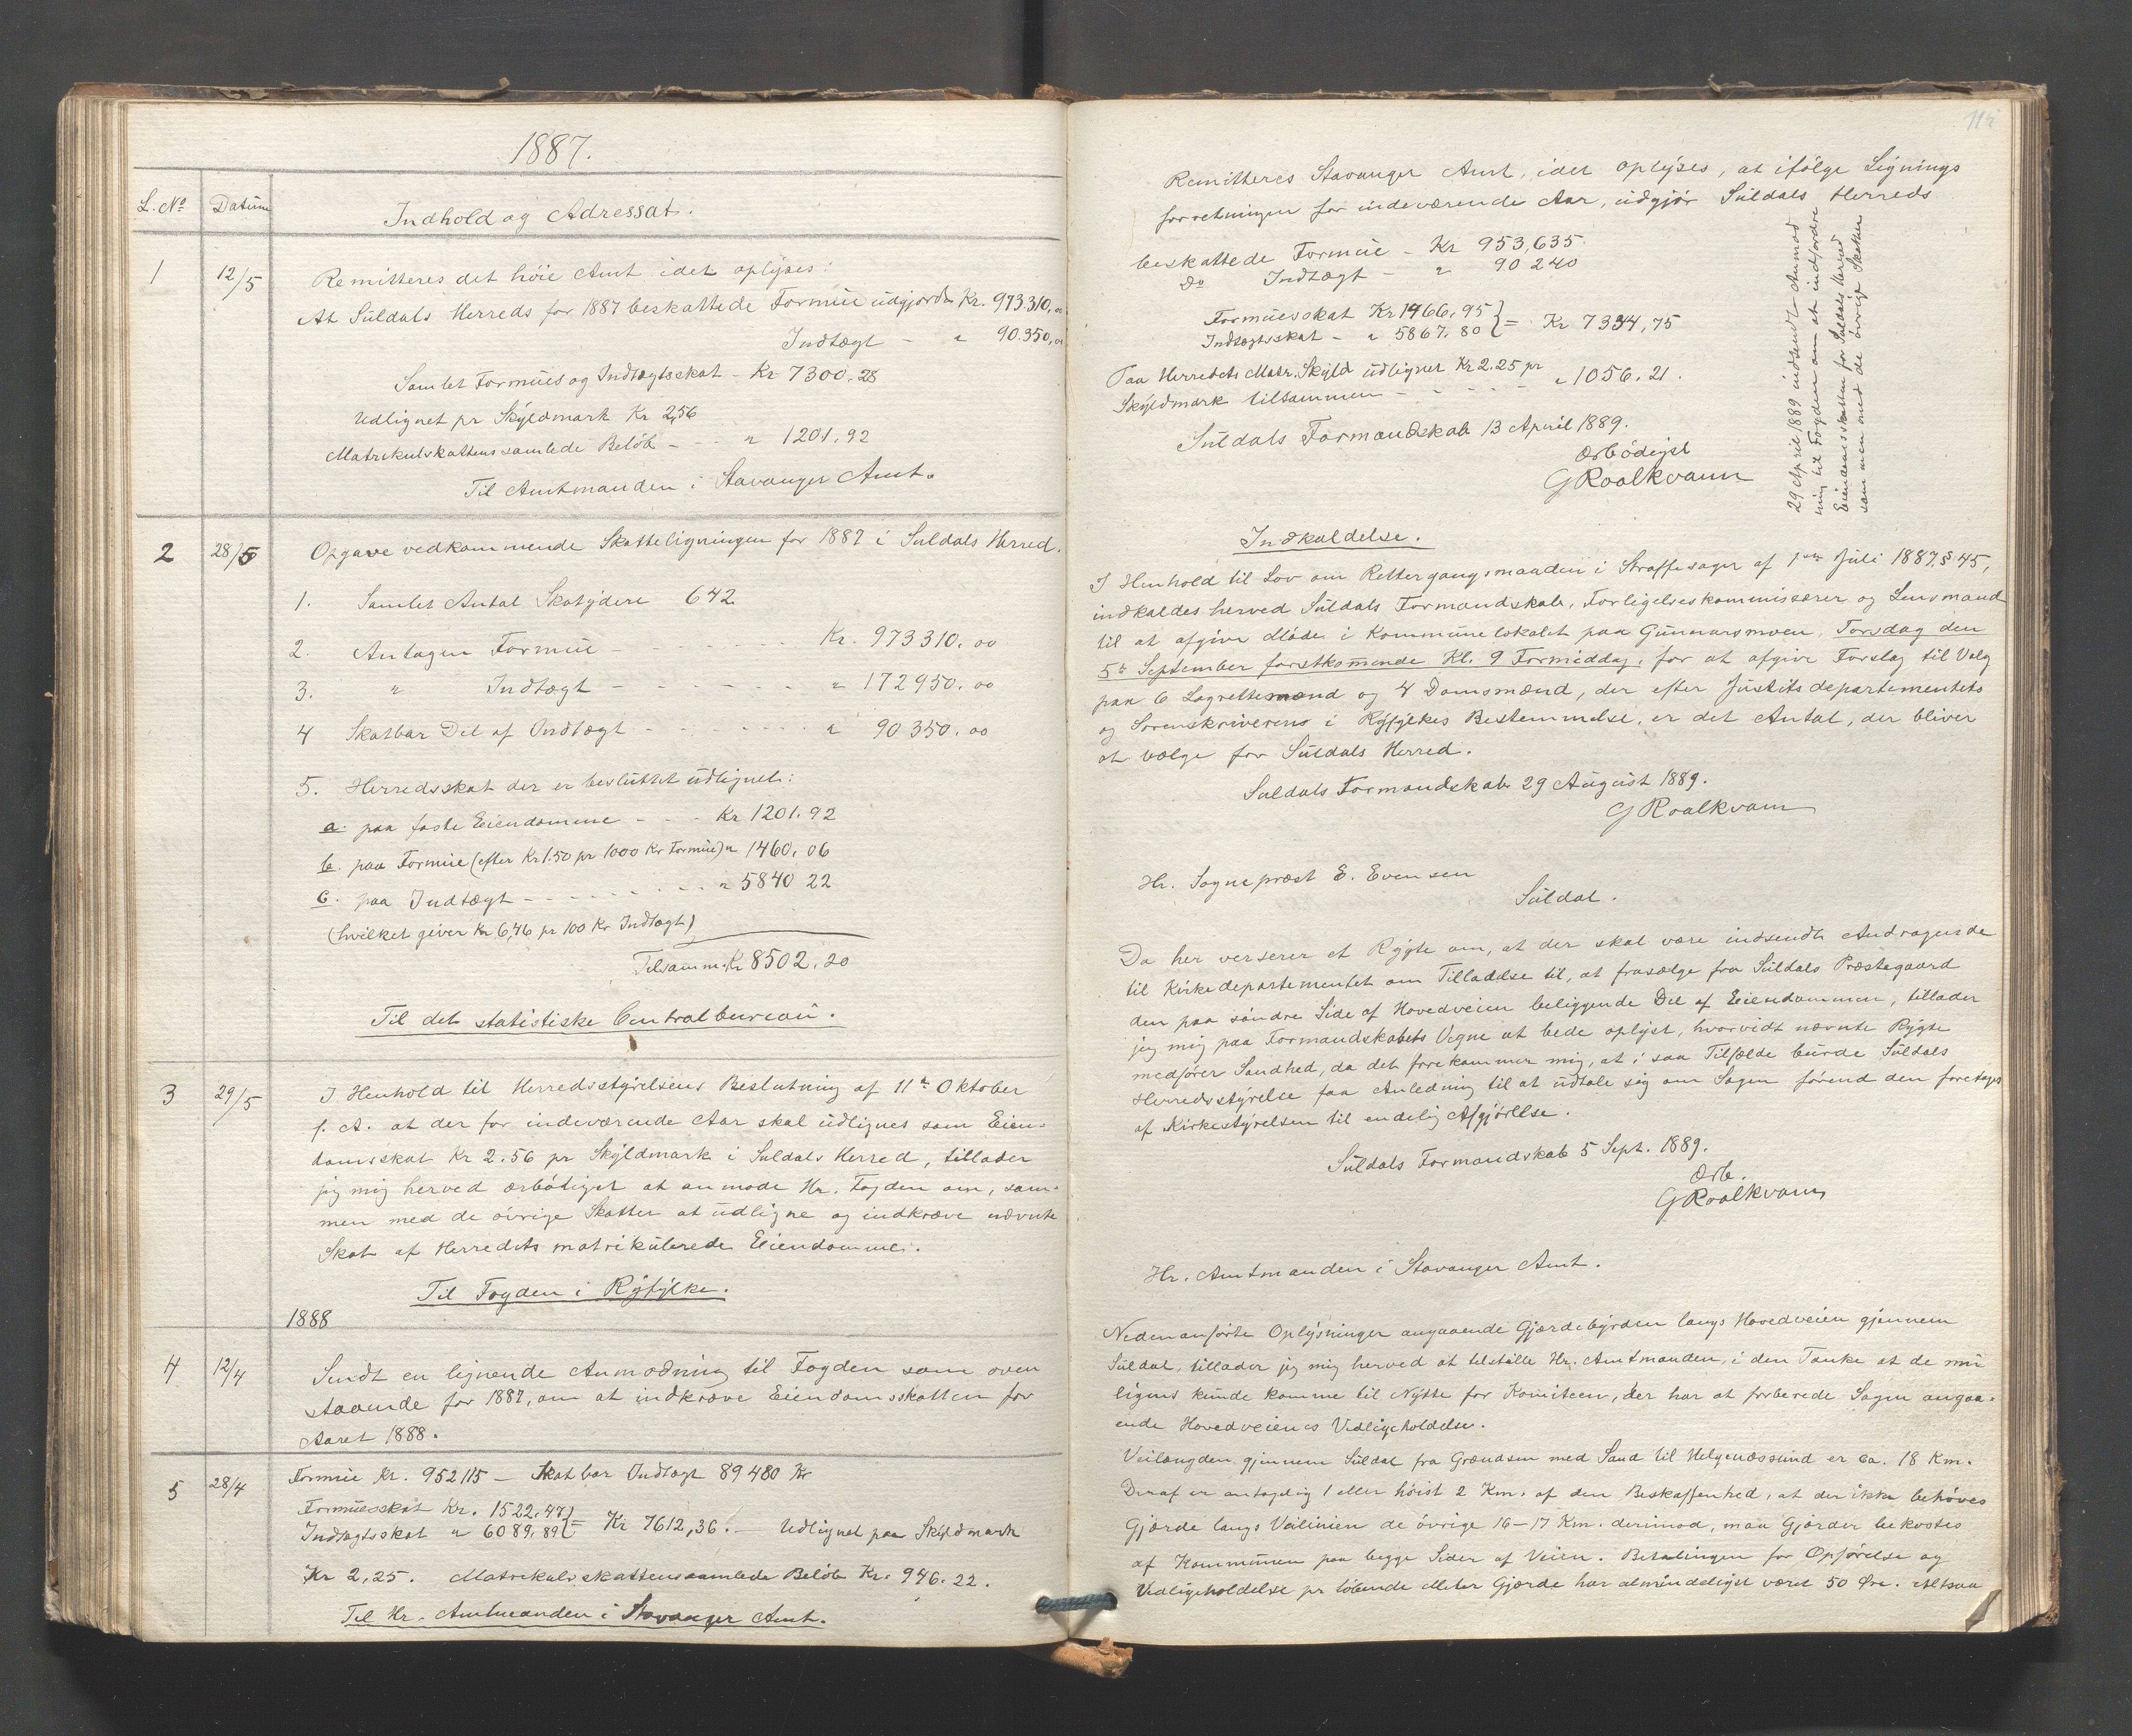 1887.
L. No Datum Indhold og Adressat.
1 12/5 Remitteres det høie Amt idet oplyses:
At Suldals Herreds for 1887 beskattede Formue udgjorde Kr. 973.310,00
Indtægt - " 90.350,00
Samlet Formues og Indtægtsskat - Kr 7300.28
Udlignet pr Skyldmark Kr 2,56
Matrikulskattens samlede Beløb - - - " 1201,92
Til Amtmanden i Stavanger Amt.
2 28/5 Opgave vedkommende Skatteligningen for 1887 i Suldals Herred.
1. Samlet Antal Skatydere 642
2. Antagen Formue - - - - - - - Kr. 973310.00
3. " Indtægt - - - - - - " 172950.00
4 Skatbar Del af Indtægt - - - - - - - " 90350.00
5. Herredsskat der er besluttet udlignet:
a. paa faste Eiendomme - - - Kr 1201.92
b. paa Formue (efter Kr 1.50 pr 1000 Kr Formue) " 1460,06
c. paa Indtægt - - - - - - - " 5840 22
(hvilket giver Kr 6,46 pr 100 Kr Indtægt)
Tilsamm. Kr 8502.20
Til det statistiske Centralbureau.
3 29/5 I Henhold til Herredsstyrelsens Beslutning af 11te Oktober
f. A. at der for indeværende Aar skal udlignes som Eien-
domsskat Kr 2.56 pr Skyldmark i Suldals Herred, tillader
jeg mig herved ærbødigst at anmode Hr. Fogden om, sam-
men med de øvrige Skatter at udligne og indkræve nævnte
Skat af Herredets matrikulerede Eiendomme.
Til Fogden i Ryfylke.
1888
4 12/4 Sendt en lignende Anmodning til Fogden som oven
staaende for 1887, om at indkræve Eiendomsskatten for
Aaret 1888.
5 28/4 Formue Kr. 952115 - Skatbar Indtægt 89480 Kr
Formuesskat Kr. 1522.47
Indtægtsskat " 6089,89 } = Kr 7612,36. - Udlignet paa Skyldmark
Kr 2,25. Matrikulsskattens samlede Beløb Kr. 946.22.
Til Hr. Amtmanden i Stavanger Amt.
Remitteres Stavanger Amt, idet oplyses, at ifølge Lignings
forretningen for indeværende Aar, udgjør Suldals Herreds
beskattede Formue - Kr 953,635.
Do Indtægt - " 90240
Formuesskat Kr 1466,95
Indtægtsskat - " 5867.80 } = Kr 7334,75
Paa Herredets Matr. Skyld udlignet Kr 2.25 pr
Skyldmark tilsammen - - - - - " 1056.21.
Suldals Formandskab 13 April 1889.
Ærbødigst
G Roalkvam
29 April 1889 indsendt Anmod
ning til Fogden om at indfordre
Eiendomsskatten for Suldals Herred
sammen med de øvrige Skatter
Indkaldelse.
I Henhold til Lov om Rettergangsmaaden i Straffesager af 1ste Juli 1887, § 45,
indkaldes herved Suldals Formandskab, Forligelseskommissærer og Lensmand
til at afgive Møde i Kommunelokalet paa Gunnarsmoen, Torsdag den
5te September førstkommende Kl. 9 Formiddag, for at afgive Forslag til Valg
paa 6 Lagrettemænd og 4 Domsmænd, der efter Justitsdepartementets
og Sorenskriverens i Ryfylkes Bestemmelse, er det Antal, der bliver
at vælge for Suldals Herred.
Suldals Formandskab 29 August 1889.
G Roalkvam
Hr. Sogneprest E. Evensen
Suldal.
Da her verserer et Rygte om, at der skal være indsendt Andragende
til Kirkedepartementet om Tilladelse til, at frasælge fra Suldals Præstegaard
den paa søndre Side af Hovedveien beliggende Del af Eiendommen, tillader
jeg mig paa Formandskabets Vegne at bede oplyst, hvorvidt nævnte Rygte
medfører Sandhed, da det forekommer mig, at i saa Tilfælde burde Suldals
Herredsstyrelse faa Anledning til at udtale sig om Sagen førend den foretages
af Kirkestyrelsen til endelig Afgjørelse.
Suldals Formandskab 5 Sept. 1889.
Ærb.
G Roalkvam
Hr. Amtmanden i Stavanger Amt.
Nedenanførte Oplysninger angaaende Gjærdebyrden langs Hovedveien gjennem
Suldal, tillader jeg mig herved at tilstille Hr. Amtmanden, i den Tanke at de mu
ligens kunde komme til Nytte for Komiteen, der har at forberede Sagen angaa-
ende Hovedveienes Vedligeholdelse.
Veilængden gjennem Suldal fra Grændsen med Sand til Helgenæssund er ca. 18 Km.
Deraf er antagelig 1 eller høist 2 Km. af den Beskaffenhed, at der ikke behøves
Gjærde langs Veilinien de øvrige 16-17 Km. derimod, maa Gjærder bekostes
af Kommunen paa begge Sider af Veien. Betalingen for Opførelse og
Vedligeholdelse pr løbende Meter Gjærde har almindeligst været 50 Øre. Altsaa